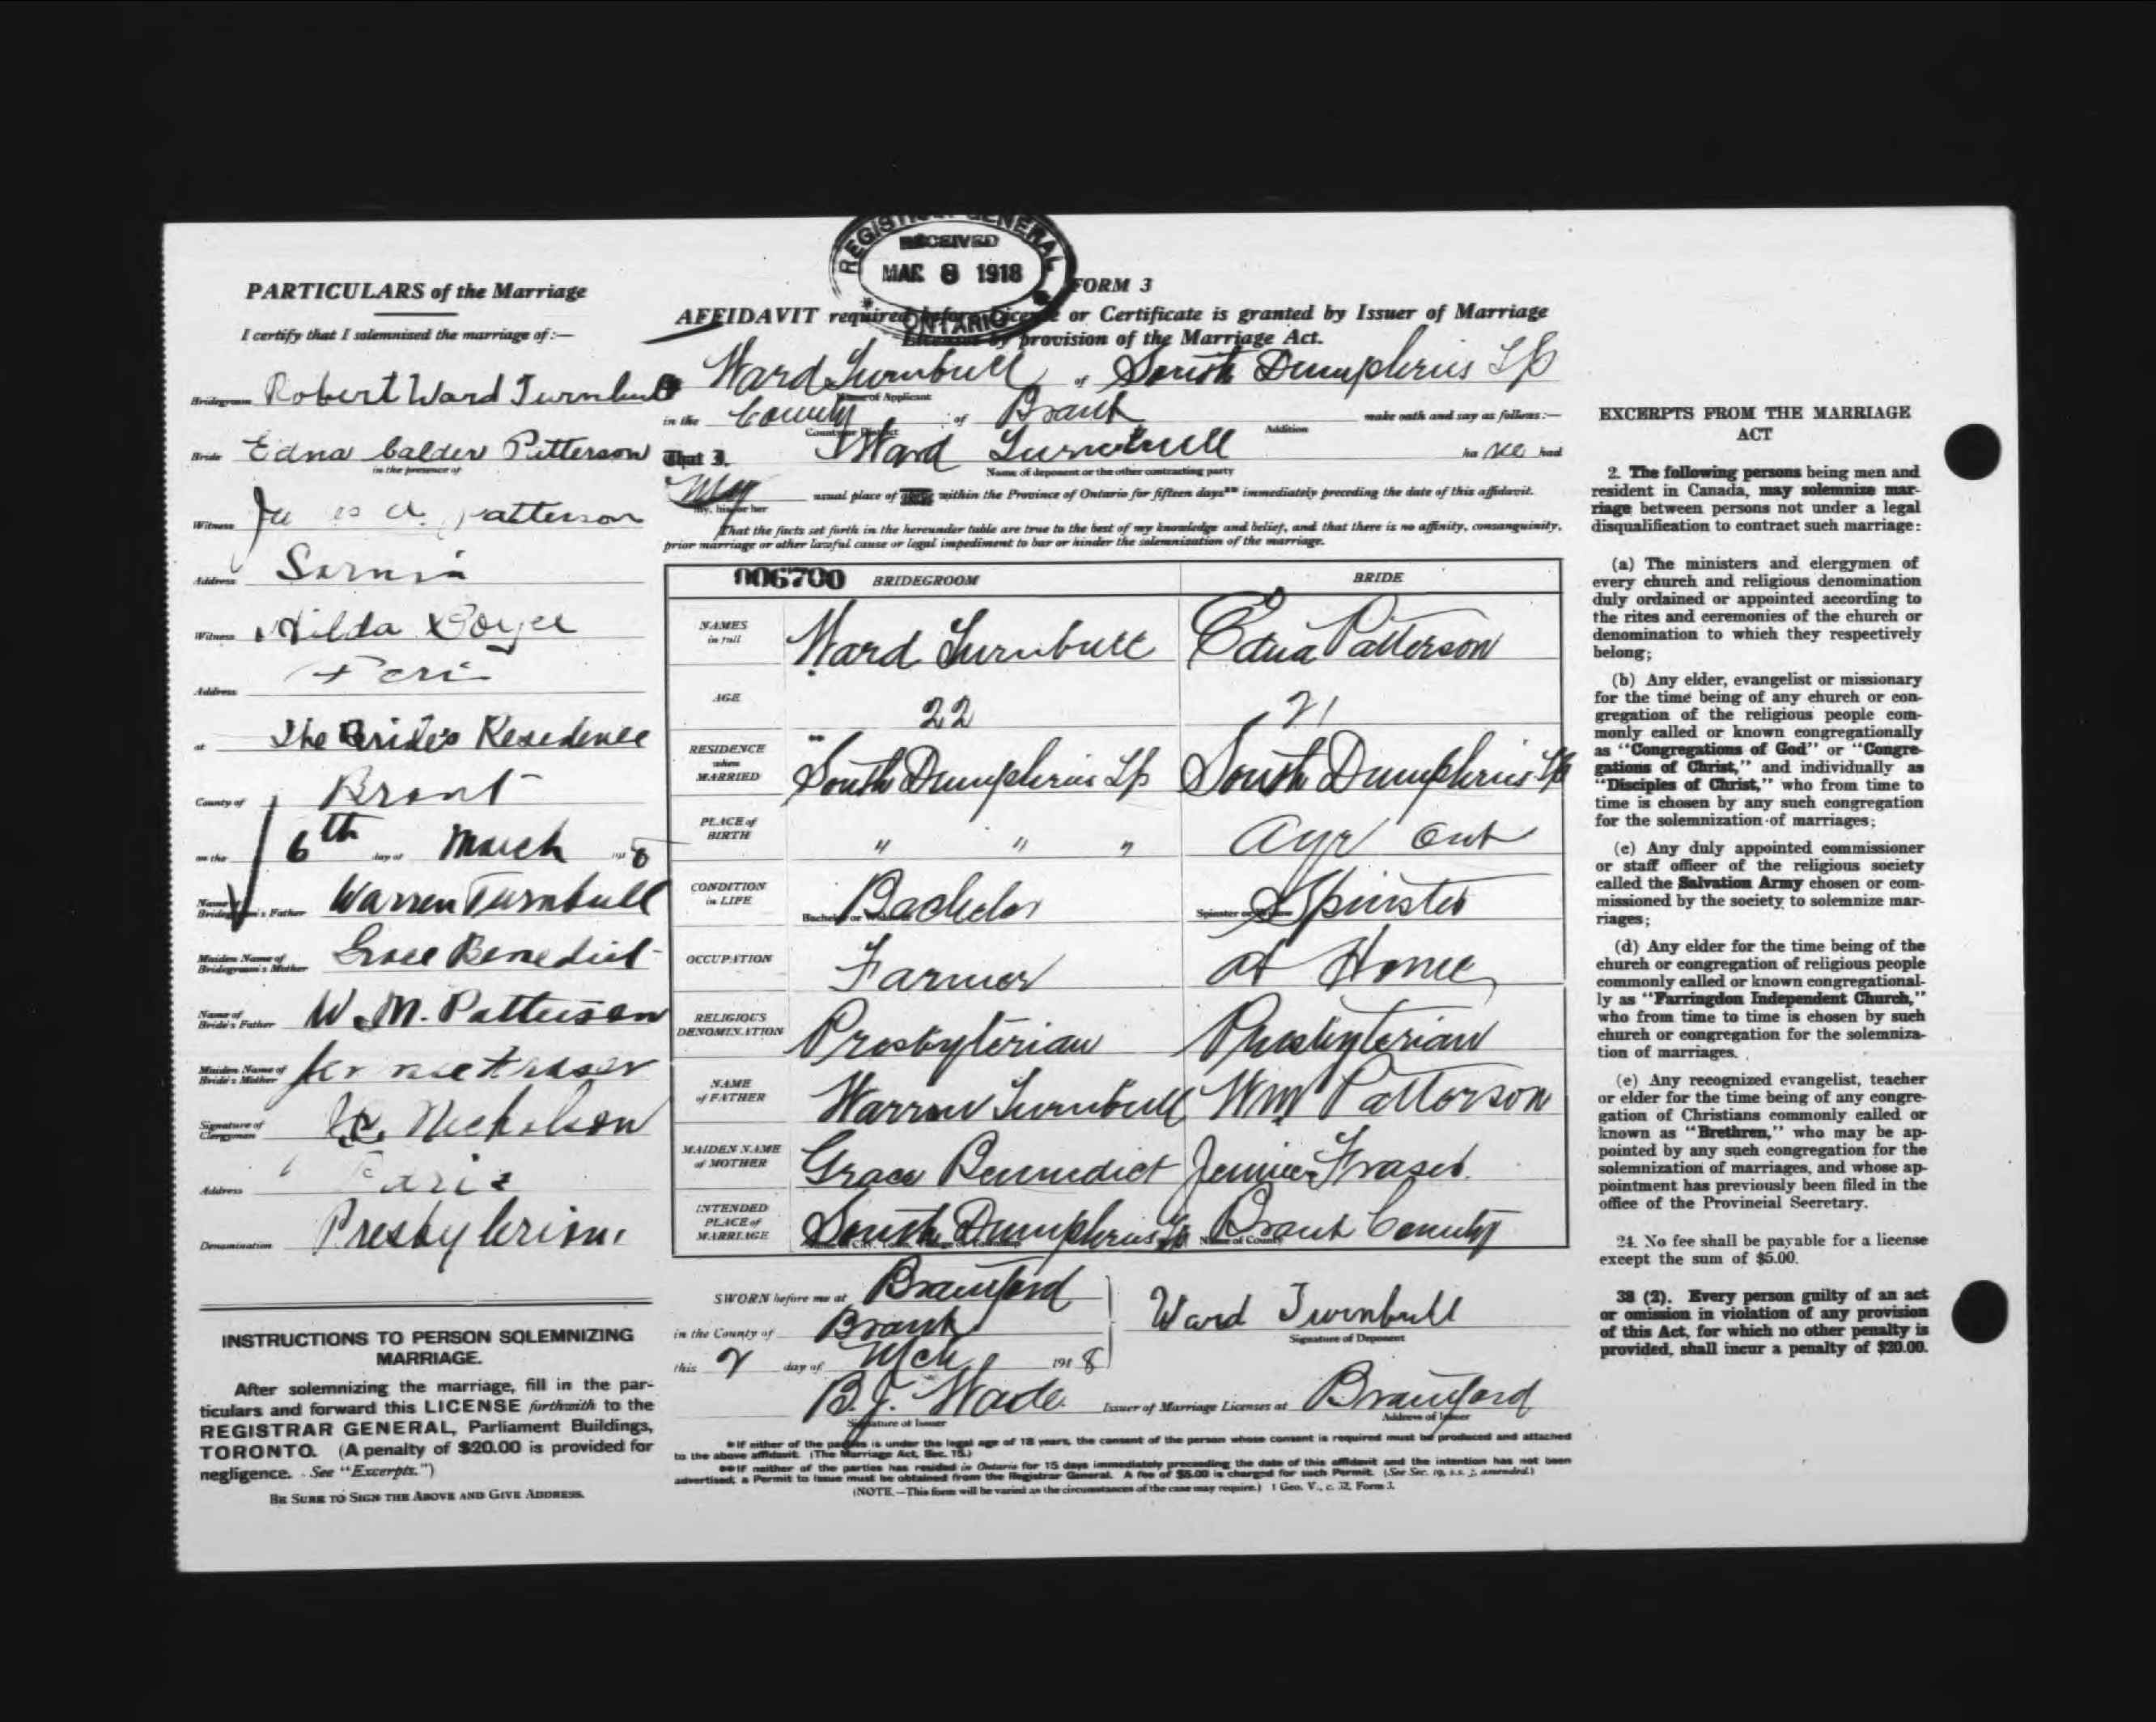 REGISTRAR GENERAL
RECEIVED
MAR 8 1918
ONTARIO
PARTICULARS of the Marriage
I certify that I solemnised the marriage of:—
Bridegroom Robert Ward Turnbull
Bride Edna Calder Patterson
in the presence of
Witness A. Patterson
Address Sarnia
Witness Hilda
Address
at The Bride's Residence
County of Brant
on the 6th day of March 1918
Name of Bridegroom's Father Warren Turnbull
Maiden Name of Bridegroom's Mother Grace Benedict
Name of Bride's Father W. M. Patterson
Maiden Name of Bride's Mother Jennie Fraser
Signature of Clergyman Nicholson
Address Paris
Denomination Presbyterian
INSTRUCTIONS TO PERSON SOLEMNIZING
MARRIAGE.
After solemnizing the marriage, fill in the par-
ticulars and forward this LICENSE forthwith to the
REGISTRAR GENERAL, Parliament Buildings,
TORONTO. (A penalty of $20.00 is provided for
negligence. See "Excerpts.")
BE SURE TO SIGN THE ABOVE AND GIVE ADDRESS.
FORM 3
AFFIDAVIT required before License or Certificate is granted by Issuer of Marriage
Licenses by provision of the Marriage Act.
Ward Turnbull of South Dumphries Tp
Name of Applicant
in the County of Brant make oath and say as follows:—
County or District Addition
That I, Ward Turnbull ha ve had
Name of deponent or the other contracting party
My usual place of within the Province of Ontario for fifteen days** immediately preceding the date of this affidavit.
My, his or her
That the facts set forth in the hereunder table are true to the best of my knowledge and belief, and that there is no affinity, consanguinity,
prior marriage or other lawful cause or legal impediment to bar or hinder the solemnization of the marriage.
006700 BRIDEGROOM BRIDE
NAMES in full Ward Turnbull Edna Patterson
AGE 22 21
RESIDENCE when MARRIED South Dumphries Tp South Dumphries Tp
PLACE of BIRTH " " " Ayr Ont
CONDITION in LIFE Bachelor Spinster
OCCUPATION Farmer at Home
RELIGIOUS DENOMINATION Presbyterian Presbyterian
NAME of FATHER Warren Turnbull Wm Patterson
MAIDEN NAME of MOTHER Grace Bennedict Jennie Fraser
INTENDED PLACE of MARRIAGE South Dumphries Tp Brant County
Name of County
SWORN before me at Brantford
in the County of Brant
this 2 day of Mch 1918
Ward Turnbull
Signature of Deponent
B.J. Wade Issuer of Marriage Licenses at Brantford
Signature of Issuer Address of Issuer
*If either of the parties is under the legal age of 18 years, the consent of the person whose consent is required must be produced and attached
to the above affidavit. (The Marriage Act, Sec. 15.)
**If neither of the parties has resided in Ontario for 15 days immediately preceding the date of this affidavit and the intention has not been
advertised, a Permit to issue must be obtained from the Registrar General. A fee of $5.00 is charged for such Permit. (See Sec. 19, s.s. 3, amended.)
(NOTE.—This form will be varied as the circumstances of the case may require.) 1 Geo. V., c. 32, Form 3.
EXCERPTS FROM THE MARRIAGE
ACT
2. The following persons being men and
resident in Canada, may solemnize mar-
riage between persons not under a legal
disqualification to contract such marriage:
(a) The ministers and clergymen of
every church and religious denomination
duly ordained or appointed according to
the rites and ceremonies of the church or
denomination to which they respectively
belong;
(b) Any elder, evangelist or missionary
for the time being of any church or con-
gregation of the religious people com-
monly called or known congregationally
as "Congregations of God" or "Congre-
gations of Christ," and individually as
"Disciples of Christ," who from time to
time is chosen by any such congregation
for the solemnization of marriages;
(c) Any duly appointed commissioner
or staff officer of the religious society
called the Salvation Army chosen or com-
missioned by the society to solemnize mar-
riages;
(d) Any elder for the time being of the
church or congregation of religious people
commonly called or known congregational-
ly as "Farringdon Independent Church,"
who from time to time is chosen by such
church or congregation for the solemniza-
tion of marriages.
(e) Any recognized evangelist, teacher
or elder for the time being of any congre-
gation of Christians commonly called or
known as "Brethren," who may be ap-
pointed by any such congregation for the
solemnization of marriages, and whose ap-
pointment has previously been filed in the
office of the Provincial Secretary.
24. No fee shall be payable for a license
except the sum of $5.00.
38 (2). Every person guilty of an act
or omission in violation of any provision
of this Act, for which no other penalty is
provided, shall incur a penalty of $20.00.